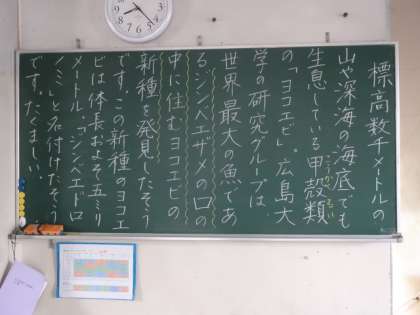 標高数千メートルの
山や深海の海底でも
生息している甲殻類
こうかくるい
の「ヨコエビ」。広島大
学の研究グループは、
世界最大の魚であ
るジンベエザメの口の
中に住むヨコエビの
新種を発見したそう
です。この新種のヨコエ
ビは体長およそ五ミリ
メートル。「ジンベエドロ
ノミ」と名付けたそう
です。たくましい…。